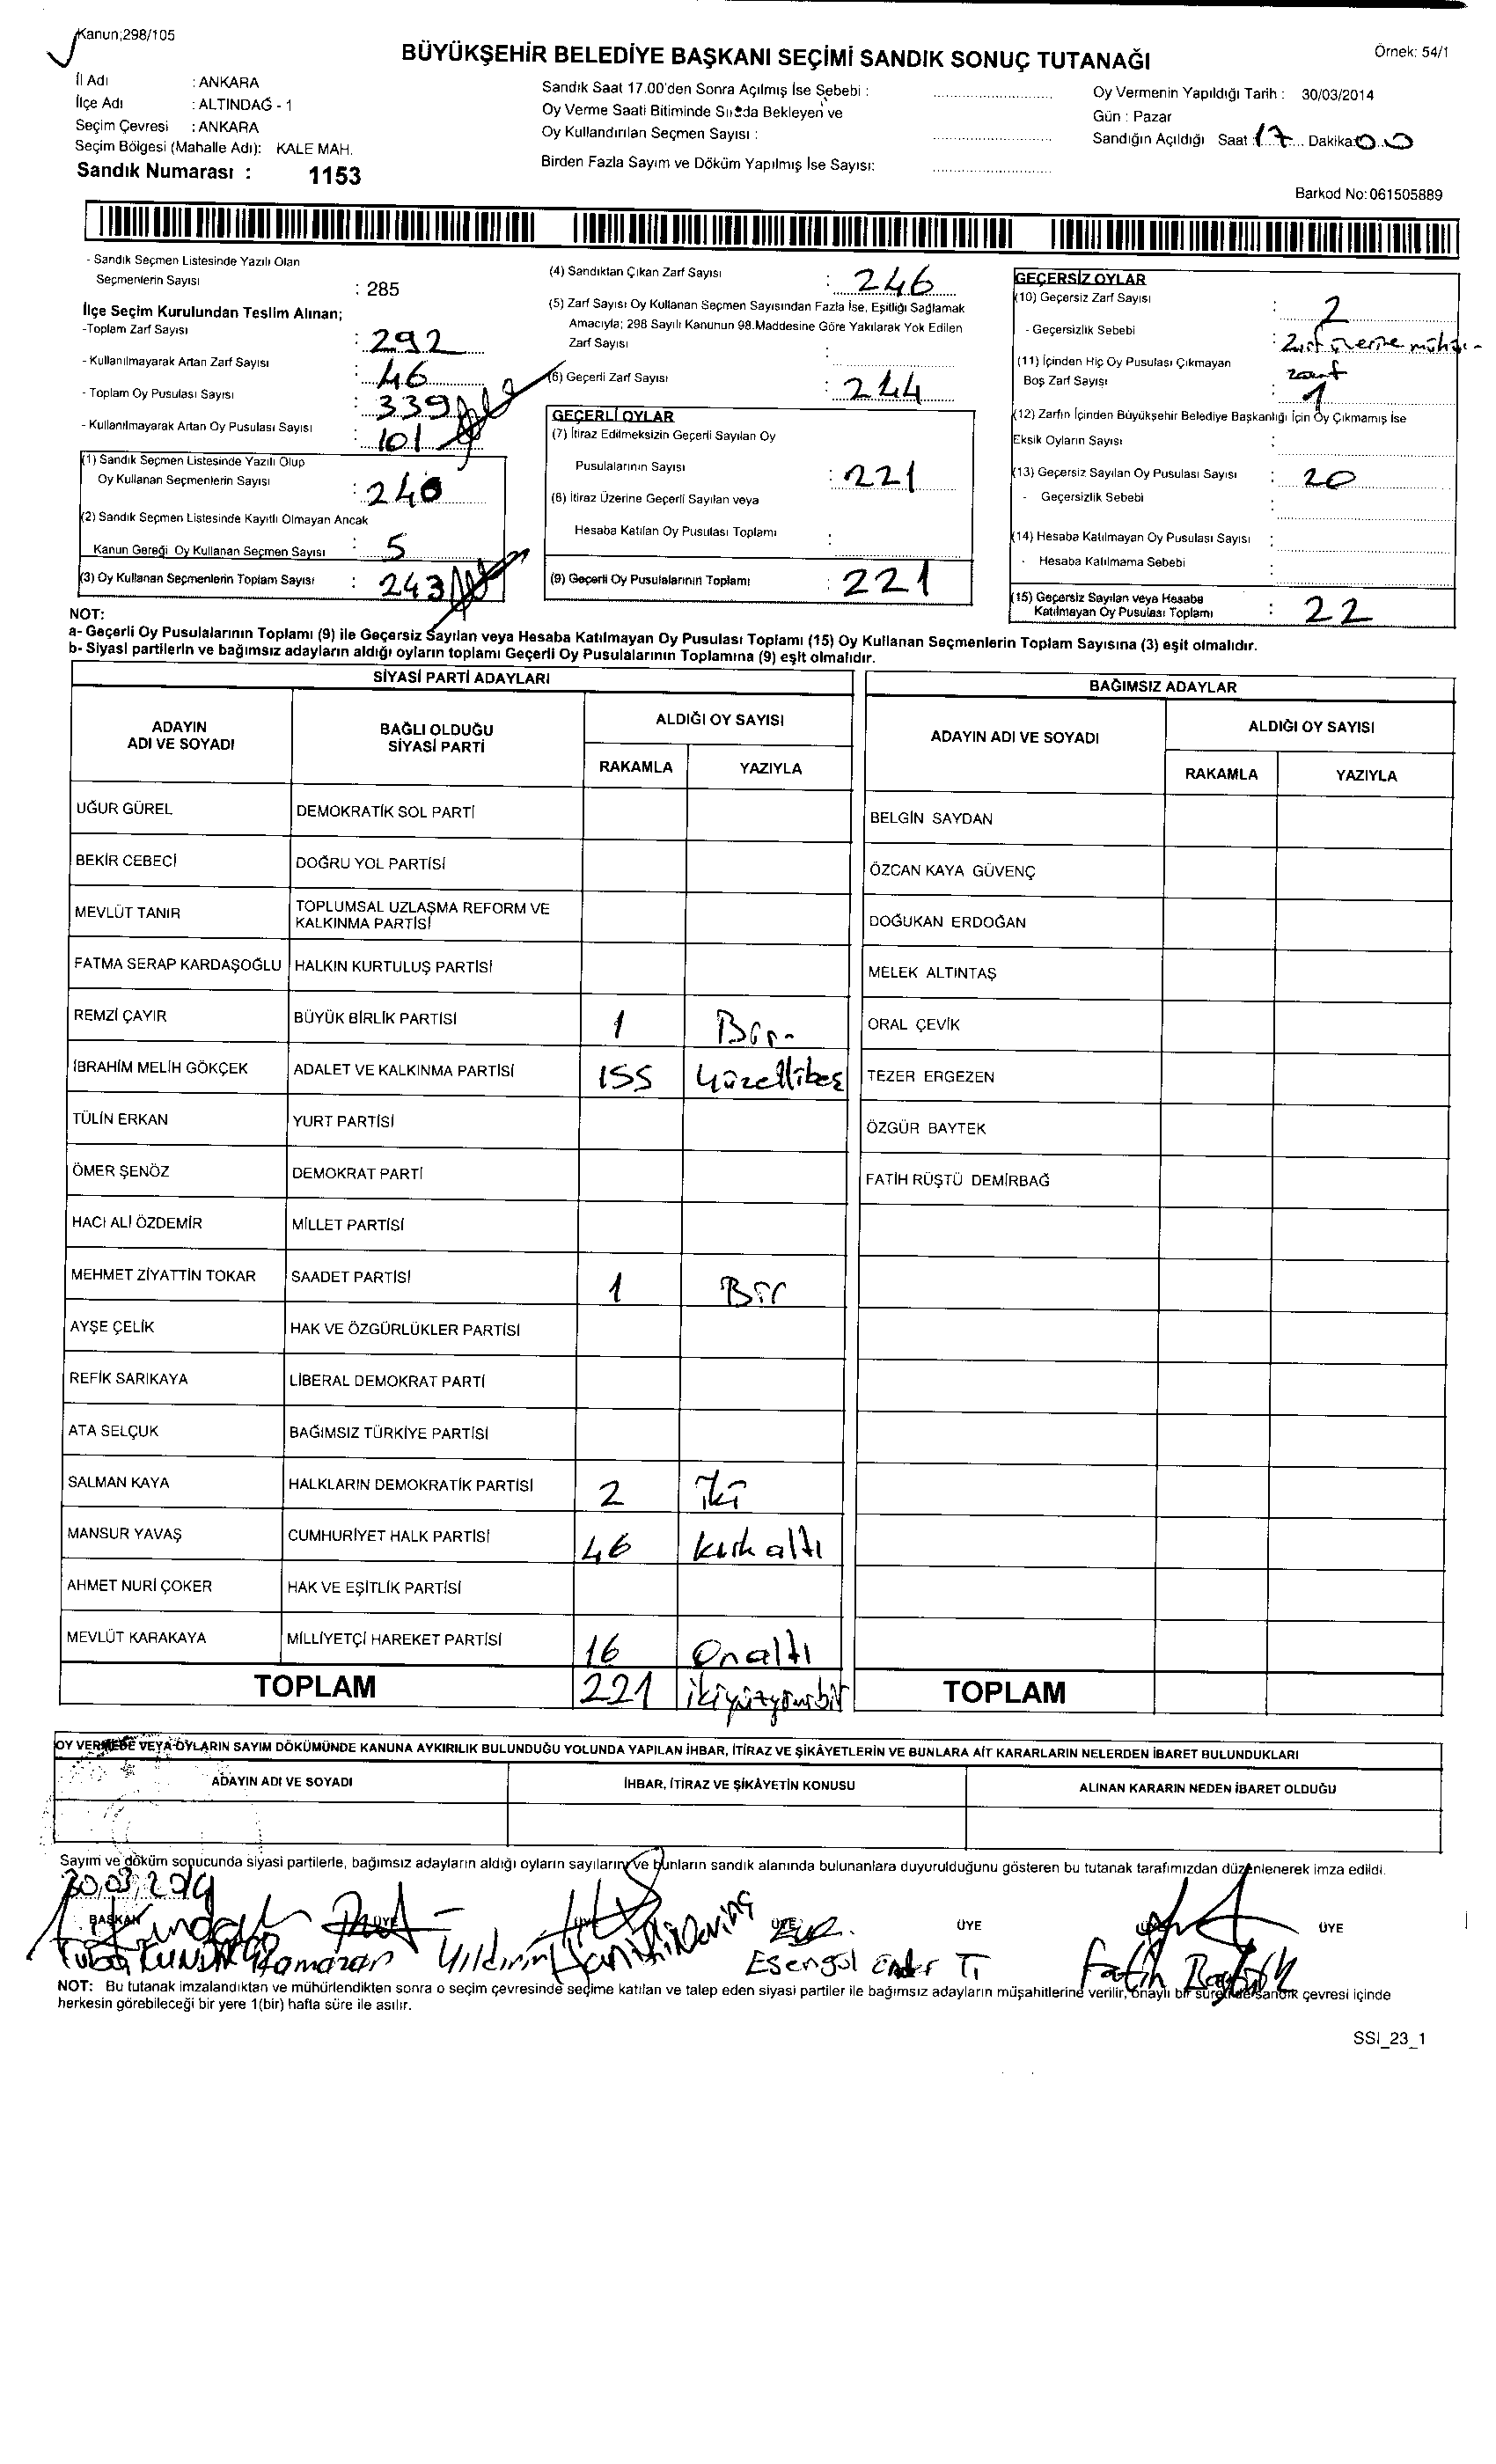 Kanun;298/105
BÜYÜKŞEHİR BELEDİYE BAŞKANI SEÇİMİ SANDIK SONUÇ TUTANAĞI
Örnek: 54/1
İl Adı : ANKARA
İlçe Adı : ALTINDAĞ - 1
Seçim Çevresi : ANKARA
Seçim Bölgesi (Mahalle Adı): KALE MAH.
Sandık Numarası : 1153
Sandık Saat 17.00'den Sonra Açılmış İse Sebebi :
Oy Verme Saati Bitiminde Sırada Bekleyen ve
Oy Kullandırılan Seçmen Sayısı :
Birden Fazla Sayım ve Döküm Yapılmış İse Sayısı:
Oy Vermenin Yapıldığı Tarih : 30/03/2014
Gün : Pazar
Sandığın Açıldığı Saat : 17 Dakika: 00
Barkod No: 061505889
- Sandık Seçmen Listesinde Yazılı Olan
Seçmenlerin Sayısı : 285
İlçe Seçim Kurulundan Teslim Alınan;
-Toplam Zarf Sayısı : 292
- Kullanılmayarak Artan Zarf Sayısı : 46
- Toplam Oy Pusulası Sayısı : 339
- Kullanılmayarak Artan Oy Pusulası Sayısı : 101
(1) Sandık Seçmen Listesinde Yazılı Olup
Oy Kullanan Seçmenlerin Sayısı :
(2) Sandık Seçmen Listesinde Kayıtlı Olmayan Ancak
Kanun Gereği Oy Kullanan Seçmen Sayısı : 5
(3) Oy Kullanan Seçmenlerin Toplam Sayısı : 243
(4) Sandıktan Çıkan Zarf Sayısı : 246
(5) Zarf Sayısı Oy Kullanan Seçmen Sayısından Fazla İse, Eşitliği Sağlamak
Amacıyla; 298 Sayılı Kanunun 98.Maddesine Göre Yakılarak Yok Edilen
Zarf Sayısı :
(6) Geçerli Zarf Sayısı : 244
GEÇERLİ OYLAR
(7) İtiraz Edilmeksizin Geçerli Sayılan Oy
Pusulalarının Sayısı : 221
(8) İtiraz Üzerine Geçerli Sayılan veya
Hesaba Katılan Oy Pusulası Toplamı :
(9) Geçerli Oy Pusulalarının Toplamı : 221
GEÇERSİZ OYLAR
(10) Geçersiz Zarf Sayısı : 2
- Geçersizlik Sebebi : Zarf üzerine
(11) İçinden Hiç Oy Pusulası Çıkmayan
Boş Zarf Sayısı : 1
(12) Zarfın İçinden Büyükşehir Belediye Başkanlığı İçin Oy Çıkmamış İse
Eksik Oyların Sayısı :
(13) Geçersiz Sayılan Oy Pusulası Sayısı : 20
- Geçersizlik Sebebi :
(14) Hesaba Katılmayan Oy Pusulası Sayısı :
- Hesaba Katılmama Sebebi :
(15) Geçersiz Sayılan veya Hesaba
Katılmayan Oy Pusulası Toplamı : 22
NOT:
a- Geçerli Oy Pusulalarının Toplamı (9) ile Geçersiz Sayılan veya Hesaba Katılmayan Oy Pusulası Toplamı (15) Oy Kullanan Seçmenlerin Toplam Sayısına (3) eşit olmalıdır.
b- Siyasi partilerin ve bağımsız adayların aldığı oyların toplamı Geçerli Oy Pusulalarının Toplamına (9) eşit olmalıdır.
SİYASİ PARTİ ADAYLARI
ADAYIN ADI VE SOYADI BAĞLI OLDUĞU SİYASİ PARTİ ALDIĞI OY SAYISI
RAKAMLA YAZIYLA
UĞUR GÜREL DEMOKRATİK SOL PARTİ
BEKİR CEBECİ DOĞRU YOL PARTİSİ
MEVLÜT TANIR TOPLUMSAL UZLAŞMA REFORM VE
KALKINMA PARTİSİ
FATMA SERAP KARDAŞOĞLU HALKIN KURTULUŞ PARTİSİ
REMZİ ÇAYIR BÜYÜK BİRLİK PARTİSİ 1 Bir
İBRAHİM MELİH GÖKÇEK ADALET VE KALKINMA PARTİSİ 155 Yüzellibeş
TÜLİN ERKAN YURT PARTİSİ
ÖMER ŞENÖZ DEMOKRAT PARTİ
HACI ALİ ÖZDEMİR MİLLET PARTİSİ
MEHMET ZİYATTİN TOKAR SAADET PARTİSİ 1 Bir
AYŞE ÇELİK HAK VE ÖZGÜRLÜKLER PARTİSİ
REFİK SARIKAYA LİBERAL DEMOKRAT PARTİ
ATA SELÇUK BAĞIMSIZ TÜRKİYE PARTİSİ
SALMAN KAYA HALKLARIN DEMOKRATİK PARTİSİ 2 iki
MANSUR YAVAŞ CUMHURİYET HALK PARTİSİ 46 kırkaltı
AHMET NURİ ÇOKER HAK VE EŞİTLİK PARTİSİ
MEVLÜT KARAKAYA MİLLİYETÇİ HAREKET PARTİSİ 16 Onaltı
TOPLAM 221 ikiyüzyirmibir
BAĞIMSIZ ADAYLAR
ADAYIN ADI VE SOYADI ALDIĞI OY SAYISI
RAKAMLA YAZIYLA
BELGİN SAYDAN
ÖZCAN KAYA GÜVENÇ
DOĞUKAN ERDOĞAN
MELEK ALTINTAŞ
ORAL ÇEVİK
TEZER ERGEZEN
ÖZGÜR BAYTEK
FATİH RÜŞTÜ DEMİRBAĞ
TOPLAM
OY VERMEDE VEYA OYLARIN SAYIM DÖKÜMÜNDE KANUNA AYKIRILIK BULUNDUĞU YOLUNDA YAPILAN İHBAR, İTİRAZ VE ŞİKÂYETLERİN VE BUNLARA AİT KARARLARIN NELERDEN İBARET BULUNDUKLARI
ADAYIN ADI VE SOYADI İHBAR, İTİRAZ VE ŞİKÂYETİN KONUSU ALINAN KARARIN NEDEN İBARET OLDUĞU
Sayım ve döküm sonucunda siyasi partilerle, bağımsız adayların aldığı oyların sayıların ve bunların sandık alanında bulunanlara duyurulduğunu gösteren bu tutanak tarafımızdan düzenlenerek imza edildi.
30,03,2014
BAŞKAN ÜYE ÜYE ÜYE ÜYE ÜYE ÜYE
Ramazan Yıldırım Esengül Fatih
NOT: Bu tutanak imzalandıktan ve mühürlendikten sonra o seçim çevresinde seçime katılan ve talep eden siyasi partiler ile bağımsız adayların müşahitlerine verilir, onaylı bir sureti de sandık çevresi içinde
herkesin görebileceği bir yere 1(bir) hafta süre ile asılır.
SSI_23_1